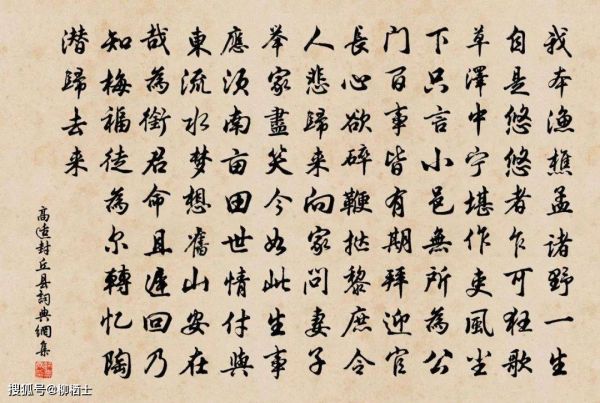 我本漁樵孟諸野一生
自是悠悠者乍可狂歌
草澤中宁堪作吏風尘
下只言小邑無所為公
门百事皆有期拜迎官
長心欲碎鞭撻黎庶令
人悲歸来向家问妻子
举家盡笑今如此生事
應须南亩田世情付與
東流水梦想舊山安在
哉為銜君命且遲回乃
知梅福徒為尔轉忆陶
潜歸去来
高適封丘县詞典網集
搜狐号@柳栖士